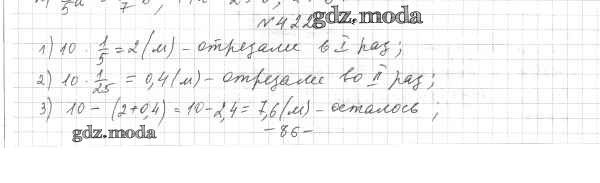 №422 gdz.moda
1) 10 · 1/5 = 2 (м) - отрезали в I раз;
2) 10 · 1/25 = 0,4 (м) - отрезали во II раз;
3) 10 - (2+0,4) = 10-2,4 = 7,6 (м) - осталось;
gdz.moda
-86-